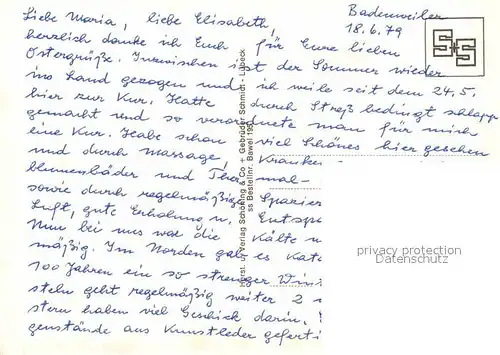 Badenweiler
18.6.79
Liebe Maria, liebe Elisabeth!
herzlich danke ich Euch für Eure lieben
Ostergrüße. Inzwischen ist der Sommer wieder
ins Land gezogen und ich weile seit dem 24.5.
hier zur Kur. Hatte durch Streß bedingt schlapp
gemacht und so verordnete man für mich
eine Kur. Habe schon viel Schönes hier gesehen
und durch Massage, Kranken-
blumenbäder und mal-
sowie durch regelmäßige Spazier
Luft, gute Erholung u. Entsp
Nun bei uns war die Kälte u
mäßig. Im Norden gab es Kat
100 Jahren ein so strenger Win
steln geht regelmäßig weiter 2
stern haben viel Geschick darin.
genstände aus Kunstleder geferti
Verlag Schöning & Co + Gebrüder Schmidt - Lübeck
ss Bestellnr. Bawei
S+S
privacy protection
Datenschutz